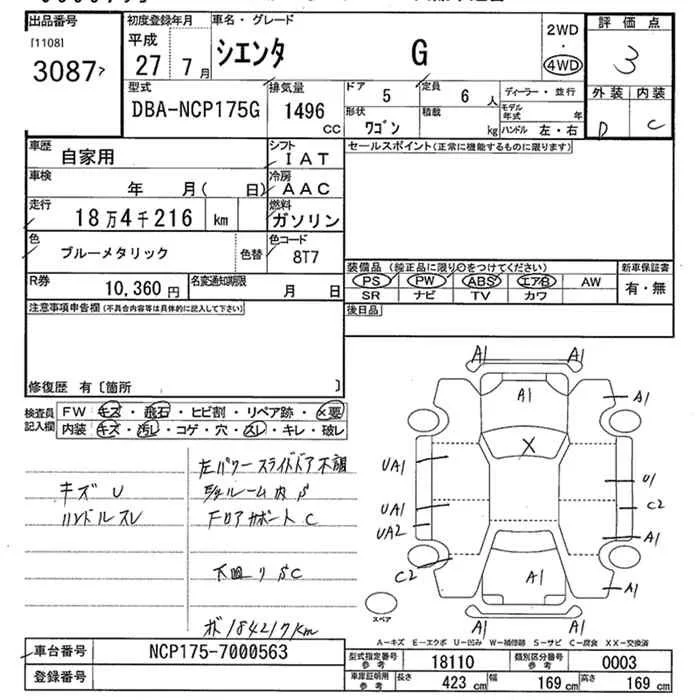 出品番号 初度登録年月 車名・グレード 2WD ・ 4WD 評価点
[1108] 平成 シエンタ G 3
3087 27 7月
型式 排気量 ドア 5 定員 6人 ディーラー・並行 外装 内装
DBA-NCP175G 1496 CC 形状 ワゴン 積載 kg モデル年式 年 D C
ハンドル 左・右
車歴 自家用 シフト IAT セールスポイント(正常に機能するものに限ります)
車検 年 月( 日) 冷房 AAC
走行 18万4千216 km 燃料 ガソリン
色 ブルーメタリック 色替 色コード 8T7
装備品 (純正品に限り○をつけてください) 新車保証書
R券 10,360円 名変通知期限 月 日 PS PW ABS エアB AW 有・無
SR ナビ TV カワ
注意事項申告欄 (不具合内容等は具体的に記入して下さい) 後日品
修復歴 有 [箇所 ]
検査員 FW キズ・飛石・ヒビ割・リペア跡・×要
記入欄 内装 キズ・汚レ・コゲ・穴・スレ・キレ・破レ
左パワースライドドア不調
キズU
ハンドルスレ
フロアサポートC
下回りSC
ボ184217km
A1 A1
A1 A1
X
UA1 U1
UA1 C2
UA2 A1
C2 A1 A1
A1 A1
スペア
A-キズ E-エクボ U-凹み W-補修跡 S-サビ C-腐食 XX-交換済
車台番号 NCP175-7000563 型式指定番号 参考 18110 類別区分番号 参考 0003
登録番号 車庫証明用 参考 長さ 423 cm 幅 169 cm 高さ 169 cm